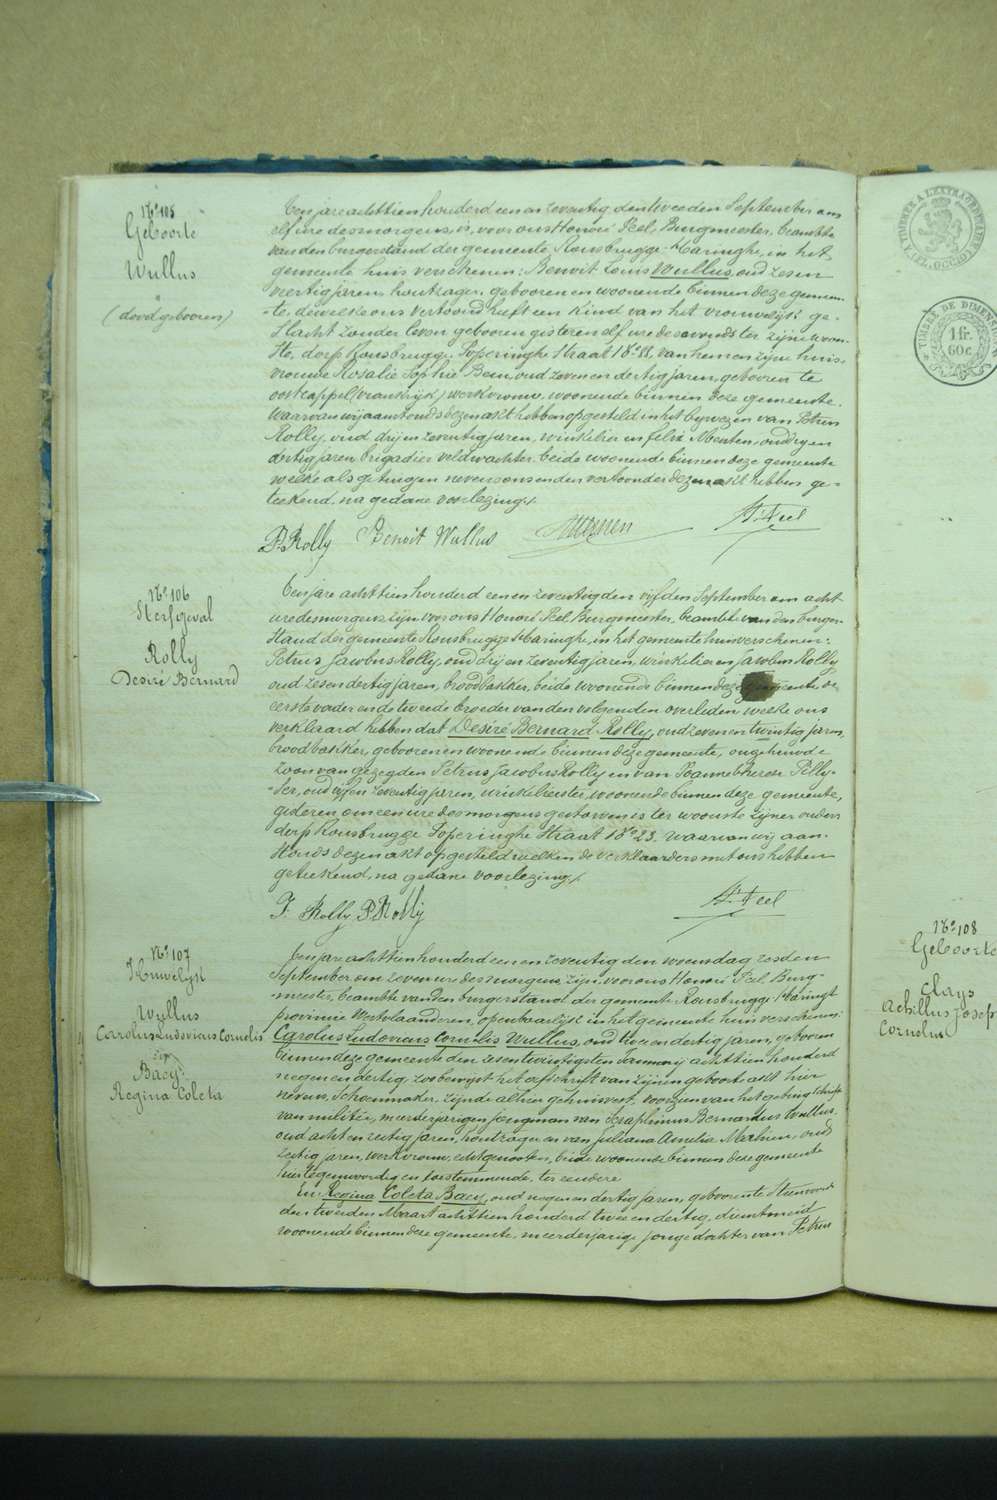 N° 105
Geboorte
Wullus
(doodgebooren)
Ten jare achttien honderd een en zeventig den tweeden September om
elf ure des morgens, is, voor ons Honoré Feel, Burgmeester, beambte
van den burgerstand der gemeente Rousbrugge-Haringhe, in het
gemeente huis verschenen: Benoit Louis Wullus, oud zes en
veertig jaren, houtzager, gebooren en woonende binnen deze gemeen-
-te, dewelke ons vertoond heeft een kind van het vrouwelijk ge-
slacht zonder leven gebooren gisteren elf ure des avonds ter zijne woon-
ste, dorp Rousbrugge, Poperinghe Straat N° 88, van hem en zijne huis-
vrouwe Rosalie Sophie Beun, oud zeven en dertig jaren, geboren te
oostcappel (vrankrijk) werkvrouw, woonende binnen deze gemeente.
Waarvan wij aanstonds dezen akt hebben opgesteld in het bijwezen van Petrus
Rolly, oud drij en zeventig jaren, winkelier en felix Meuten, oud drij en
dertig jaren, brigadier veldwachter, beide woonende binnen deze gemeente
welke als getuigen nevens ons en den vertoonder dezen akt hebben ge-
teekend, na gedane voorlezing./.
P. Rolly Benoit Wullus H. Feel
N° 106
Sterfgeval
Rolly
Desiré Bernard
Ten jare achttien honderd een en zeventig den vijfden September om acht
ure des morgens zijn voor ons Honoré Feel Burgmeester, beambte van den burger-
stand der gemeente Rousbrugge Haringhe, in het gemeente huis verschenen:
Petrus Jacobus Rolly, oud drij en zeventig jaren, winkelier en Jacobus Rolly
oud zes en dertig jaren, broodbakker, beide woonende binnen deze gemeente, de
eerste vader en de tweede broeder van den volgenden overleden welke ons
verklaard hebben dat Desiré Bernard Rolly, oud zeven en twintig jaren,
broodbakker, gebooren en woonende binnen deze gemeente, ongehuwde
zoon van gezegden Petrus Jacobus Rolly en van Joanna Theresia Pilly-
ser, oud vijf en zeventig jaren, winkelierster, woonende binnen deze gemeente,
gisteren, om een ure des morgens gestorven is ter woonste zijner ouders
dorp Rousbrugge Poperinghe Straat N° 23. waarvan wij aan-
stonds dezen akt opgesteld welken de verklaarders met ons hebben
geteekend, na gedane voorlezing./.
J. Rolly P. Rolly H. Feel
N° 107
Huwelijk
Wullus
Carolus Ludovicus Cornelis
en
Bacij
Regina Coleta
Ten jare achttien honderd een en zeventig den woensdag zesden
September om zeven ure des morgens zijn voor ons Honoré Feel Burg-
-meester, beambte van den burgerstand der gemeente Rousbrugge Haringhe
provincie Westvlaanderen, openbaarlijk in het gemeente huis verschenen:
Carolus Ludovicus Cornelis Wullus, oud twee en dertig jaren, gebooren
binnen deze gemeente den zes en twintigsten January achttien honderd
negen en dertig, zoo bewijst het afschrift van zijnen geboorte akt hier
nevens, schoenmaker, zijnde alhier gehuisvest, voorzien van het getuig schrift
van militie, meerderjarigen jongman van Seraphinus Bernardus Wullus,
oud acht en zestig jaren, houtzager en van Juliana Amelia Mahieu, oud
zestig jaren, werkvrouw, echtgenooten, beide woonende binnen deze gemeente
hier tegenwoordig en toestemmende, ter eendere
En Regina Coleta Bacij, oud negen en dertig jaren, geboren te Steenvoorde
den tweeden Maart achttien honderd twee en dertig, dienstmeid
woonende binnen deze gemeente, meerderjarige jonge dochter van Petrus
N° 108
Geboorte
Claijs
Achillus Josep
Cornelius
TIMBRE DE DIMENSION
1 fr.
60c